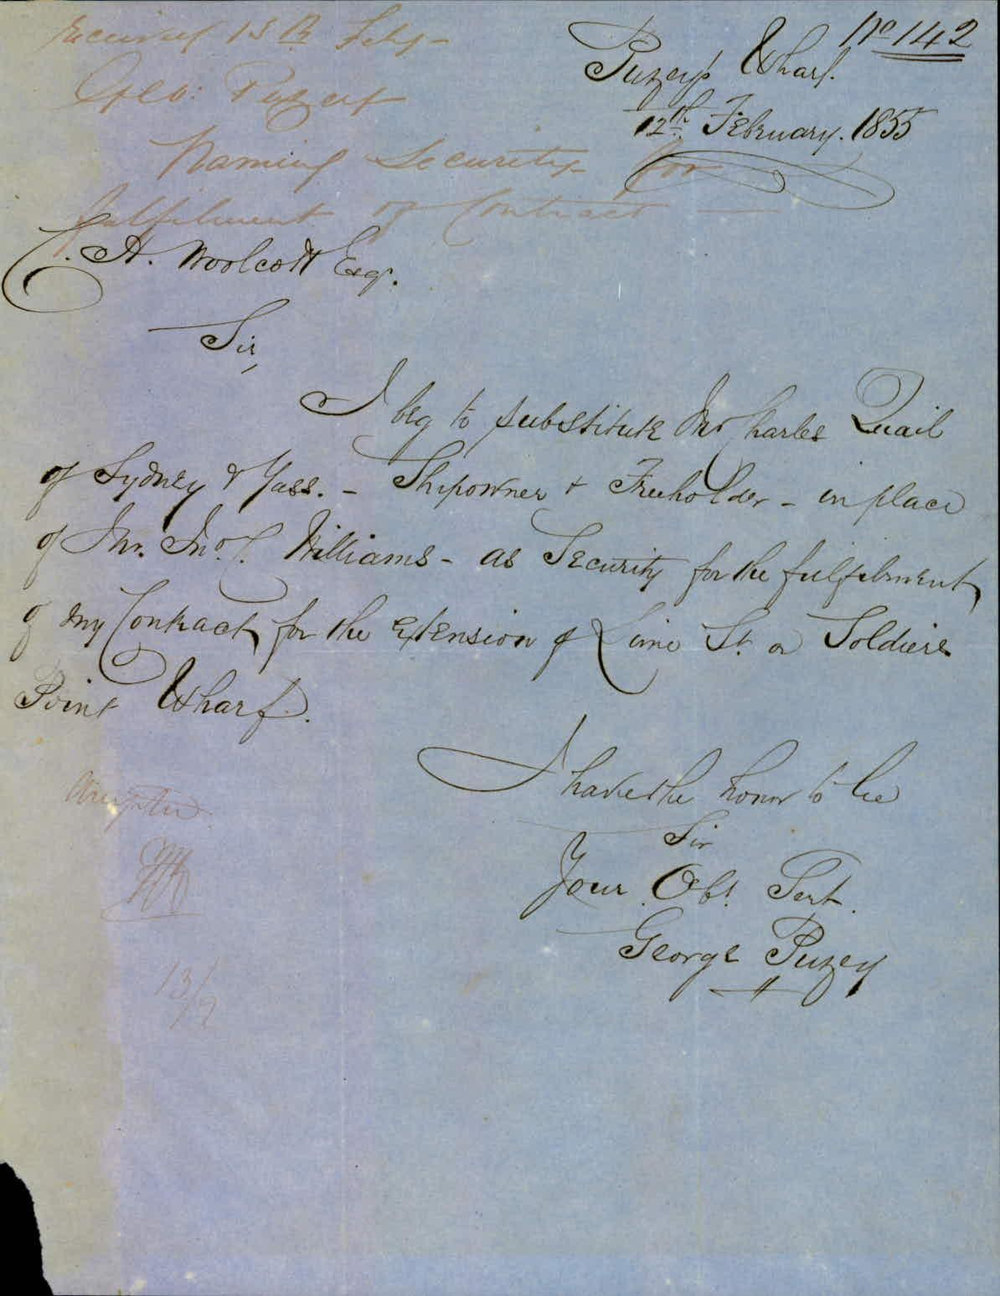 No 142
Received 13th Feby
Geo: Puzey
Naming Security for
fulfilment of Contract
Puzey's Wharf.
12th February. 1855
C. H. Woolcott Esqr.
Sir,
I beg to substitute Mr Charles Quail
of Sydney & Yass. - Shipowner & Freeholder - in place
of Mr. Jno. C. Williams - as Security for the fulfilment
of my Contract for the Extension of Lime St. or Soldiers
Point Wharf.
I have the honor to be
Sir
Your Obt. Servt.
George Puzey
13/2